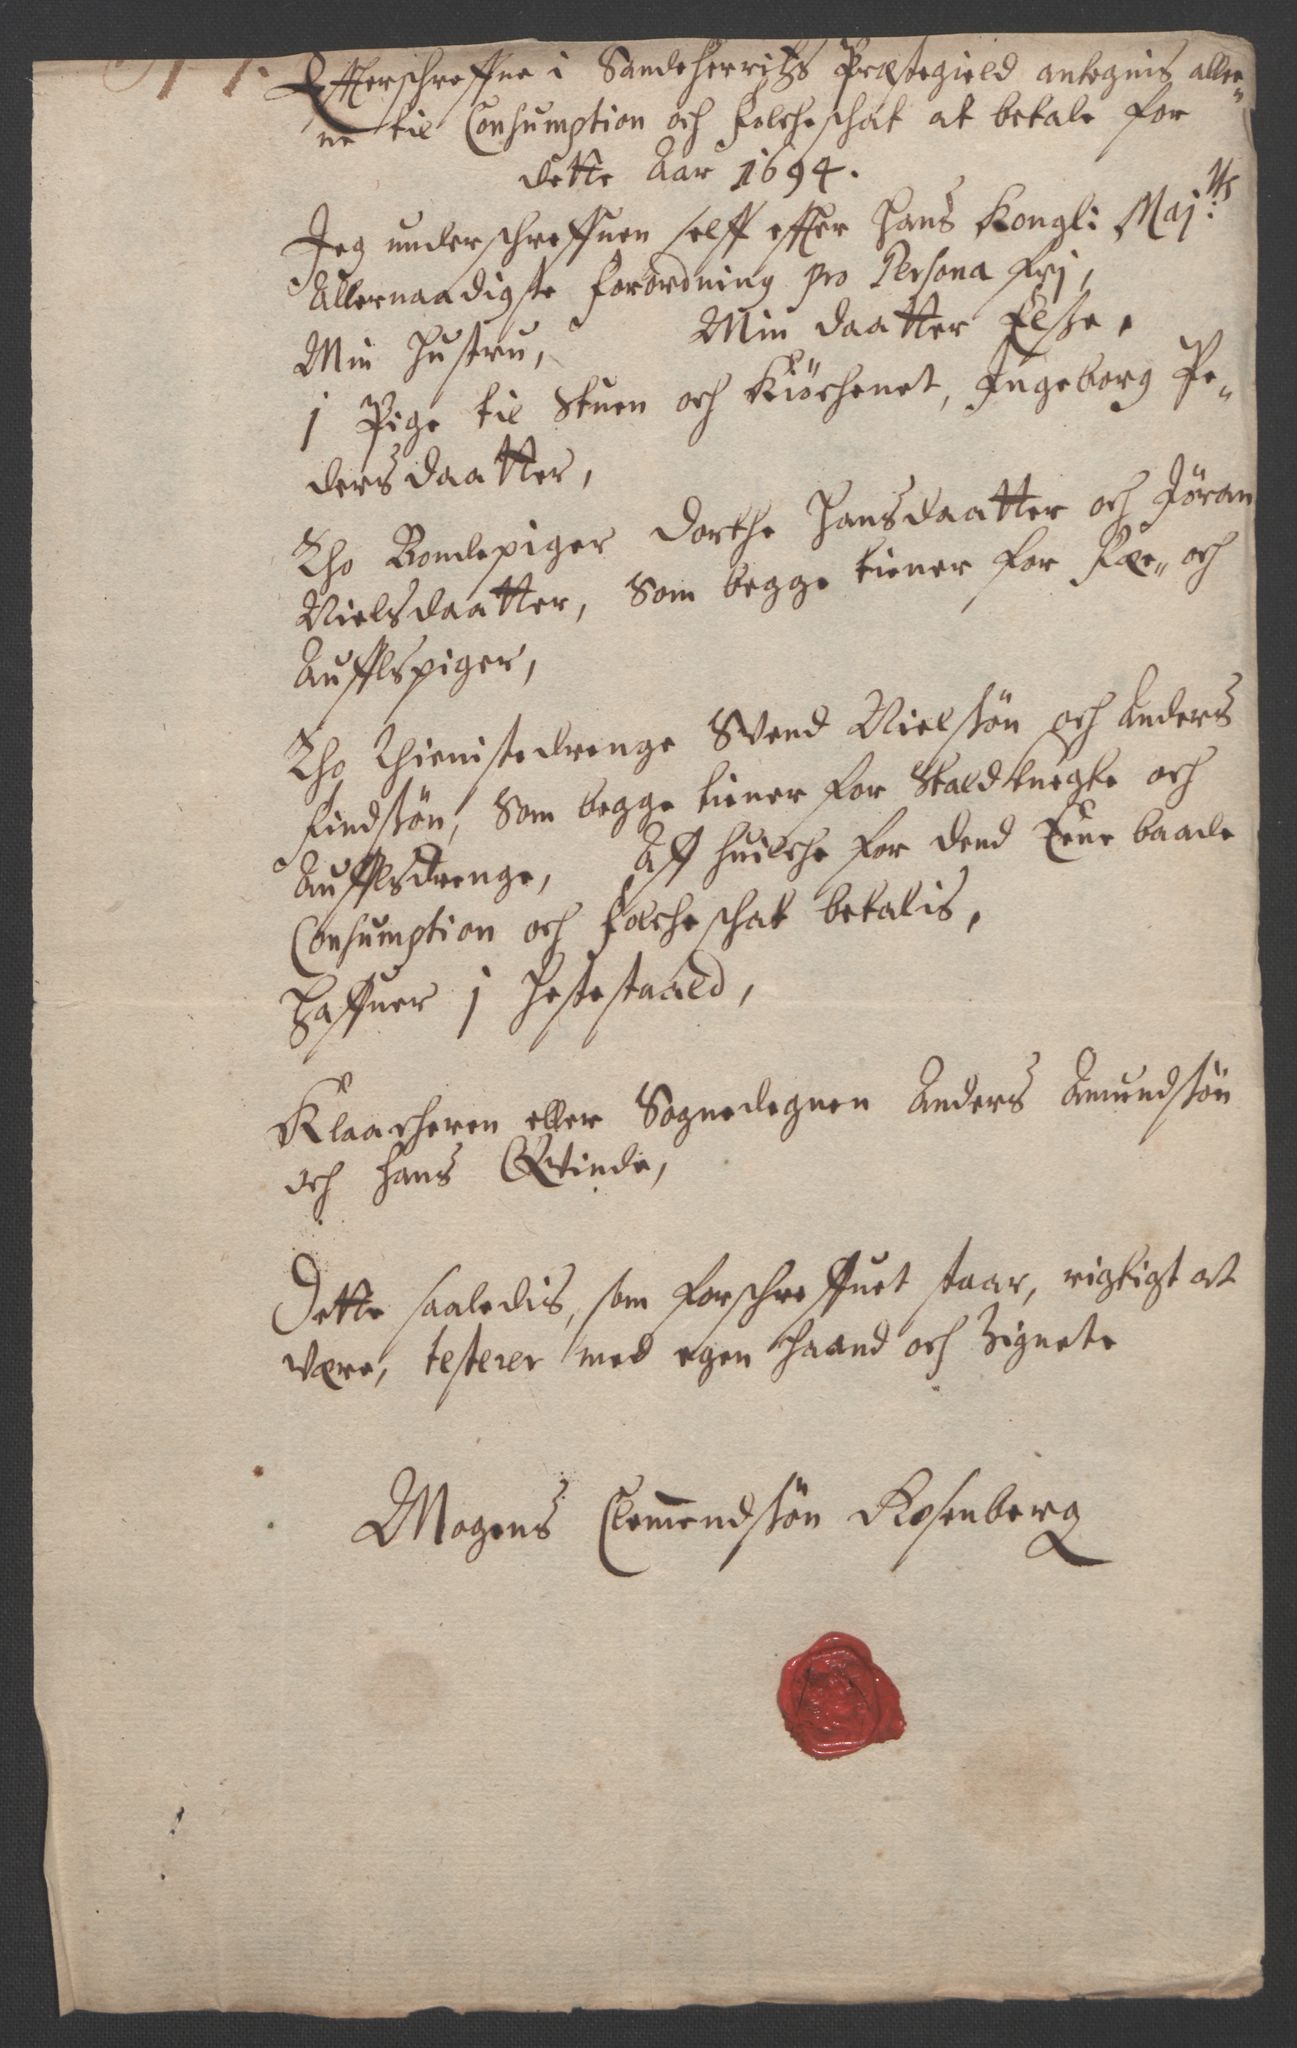 Effterschreffne i Sandeherritzs Præstegield antegnis alle„
ne til Consumption och Folcheschat at betale for
dette Aar 1694.
Jeg underschreffuen selff effter Hans Kongl: Maj:ts
Allernaadigste Forordning pro Persona frj,
Min Hustru, Min daatter Else,
1 Pige til Stuen och Kiöchenet, Ingeborg Pe„
dersdaatter,
Tho Bondepiger Dorthe Hansdaatter och Jöran
Nielsdaatter, Som begge tiener for Fæe„ och
Auffelspiger,
Tho Thienistedrenge Svend Nielssön och Anders
Findssön, Som begge tiener for Staldknegte och
Auffelsdrenge, Aff huilche for dend Eene baade
Consumption och Folcheschat betalis,
Haffuer 1 Hestestaald,
Klaacheren eller Sognedegnen Anders Amundssön
och hans Qvinde,
Dette saaledis, som forschreffuet staar, rigtigt at
være, testerer med egen Haand och Zignete
Mogens Clem̅endssön Rosenberg